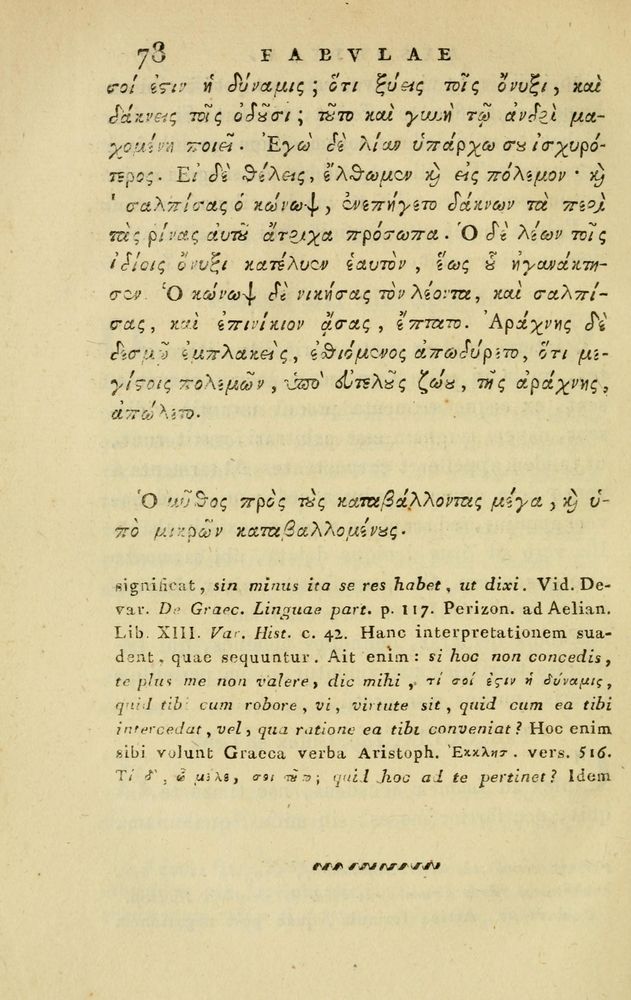 78 FABVLAE
σοί ἐστιν ἡ δύναμις; ὅτι ξύεις τοῖς ὄνυξι, καὶ
δάκνεις τοῖς ὀδοῦσι; τοῦτο καὶ γυνὴ τῷ ἀνδρὶ μα-
χομένη ποιεῖ. Ἐγὼ δὲ λίαν ὑπάρχω σου ἰσχυρό-
τερος. Εἰ δὲ θέλεις, ἔλθωμεν καὶ εἰς πόλεμον· καὶ
σαλπίσας ὁ κώνωψ, ἐνεπήγετο δάκνων τὰ περὶ
τὰς ῥίνας αὐτοῦ ἄτριχα πρόσωπα. Ὁ δὲ λέων τοῖς
ἰδίοις ὄνυξι κατέλυεν ἑαυτὸν, ἕως οὗ ἠγανάκτη-
σεν. Ὁ κώνωψ δὲ νικήσας τὸν λέοντα, καὶ σαλπί-
σας, καὶ ἐπινίκιον ᾄσας, ἔπτατο. Ἀράχνης δὲ
δεσμῷ ἐμπλακεὶς, ἐσθιόμενος ἀπωδύρετο, ὅτι με-
γίστοις πολεμῶν, ὑπὸ εὐτελοῦς ζώου, τῆς ἀράχνης,
ἀπώλετο.
Ὁ μῦθος πρὸς τοὺς καταβάλλοντας μέγα, καὶ ὑ-
πὸ μικρῶν καταβαλλομένους.
significat, sin minus ita se res habet, ut dixi. Vid. De-
var. De Graec. Linguae part. p. 117. Perizon. ad Aelian.
Lib. XIII. Var. Hist. c. 42. Hanc interpretationem sua-
dent, quae sequuntur. Ait enim: si hoc non concedis,
te plus me non valere, dic mihi, τί σοί ἐστιν ἡ δύναμις,
quid tibi cum robore, vi, virtute sit, quid cum ea tibi
intercedat, vel, qua ratione ea tibi conveniat? Hoc enim
sibi volunt Graeca verba Aristoph. Ἐκκλησ. vers. 516.
Τί δ', ὦ μέλε, σοι τοῦτο; quid hoc ad te pertinet? Idem